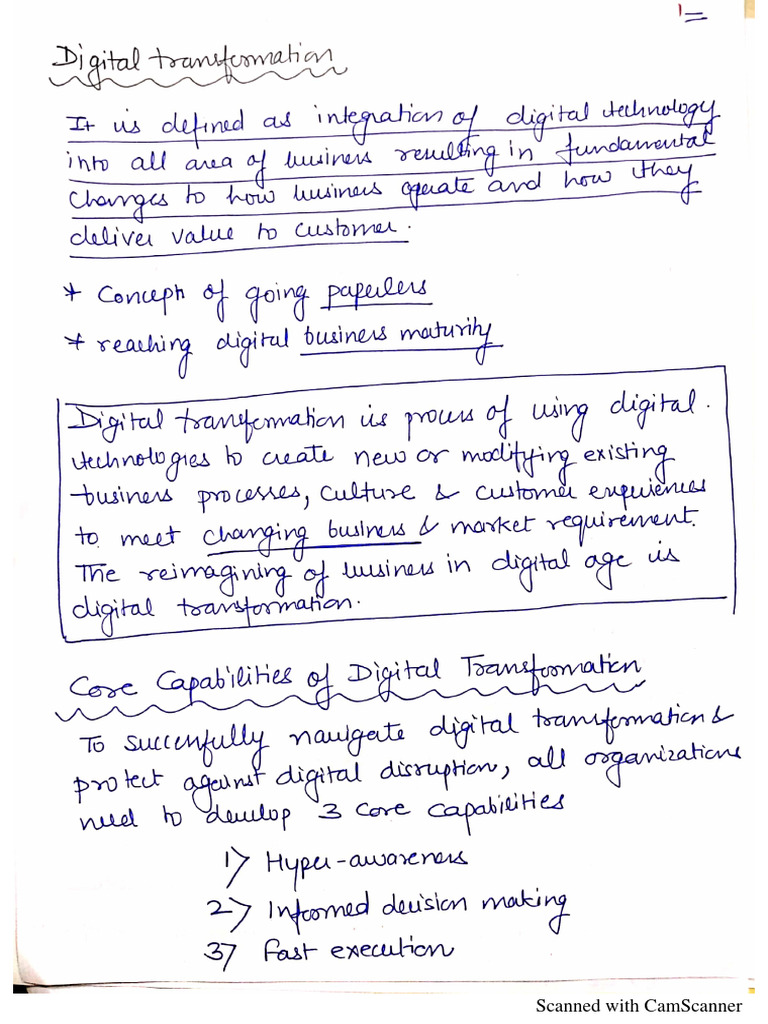 1=
Digital transformation
It is defined as integration of digital technology
into all area of business resulting in fundamental
changes to how business operate and how they
deliver value to customer.
* Concept of going paperless
* reaching digital business maturity
Digital transformation is process of using digital.
technologies to create new or modifying existing
business processes, culture & customer enquiences
to meet changing business & market requirement.
The reimagining of business in digital age is
digital transformation.
Core Capabilities of Digital Transformation
To successfully navigate digital transformation &
protect against digital disruption, all organizations
need to develop 3 core capabilities
1) Hyper-awareness
2) Informed decision making
3) Fast execution
Scanned with CamScanner